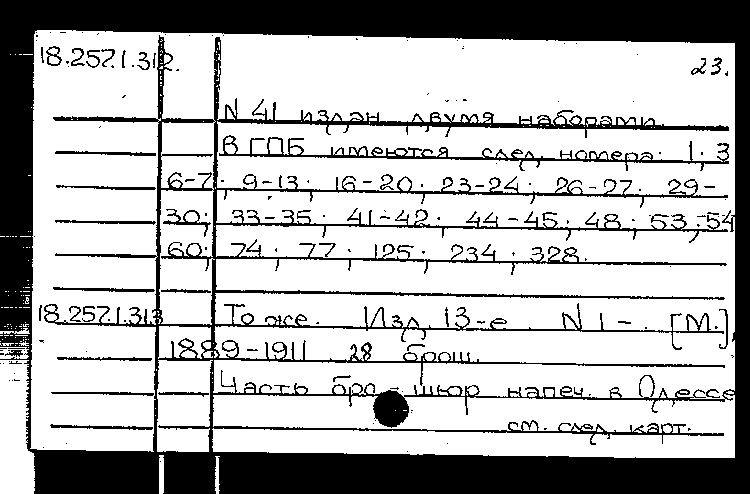 18.257.1.312. 23.
N 41 издан двумя наборами.
В ГПБ имеются след. номера: 1; 3
6-7; 9-13; 16-20; 23-24; 26-27; 29-
30; 33-35; 41-42; 44-45; 48; 53; 54
60; 74; 77; 125; 234; 328.
18.257.1.313 То же. Изд. 13-е. N 1 - . [М.],
1889-1911 28 брош.
Часть бро-шюр напеч. в Одессе
см. след. карт.